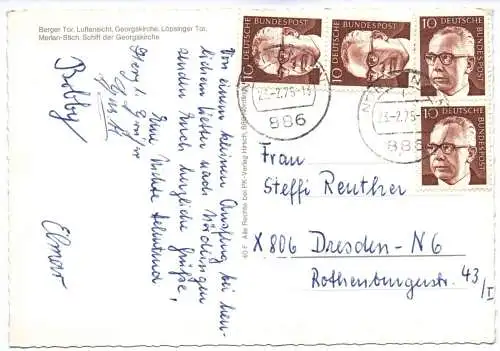 Berger Tor, Luftansicht, Georgskirche, Löpsinger Tor,
Merian-Stich, Schiff der Georgskirche
Von einem kleinen Ausflug bei herr-
lichem Wetter nach Nördlingen
senden Euch herzliche Grüße,
Eure
Helmtrud
Bobby
Elmar
40 F Alle Rechte bei FK-Verlag Hirsch,
10 DEUTSCHE BUNDESPOST
10 DEUTSCHE BUNDESPOST
10 DEUTSCHE BUNDESPOST
10 DEUTSCHE BUNDESPOST
23.-2.75-13
886
23.-2.75-
886
Frau
Steffi Reuther
X 806 Dresden-N6
Rothenburgerstr. 43/I